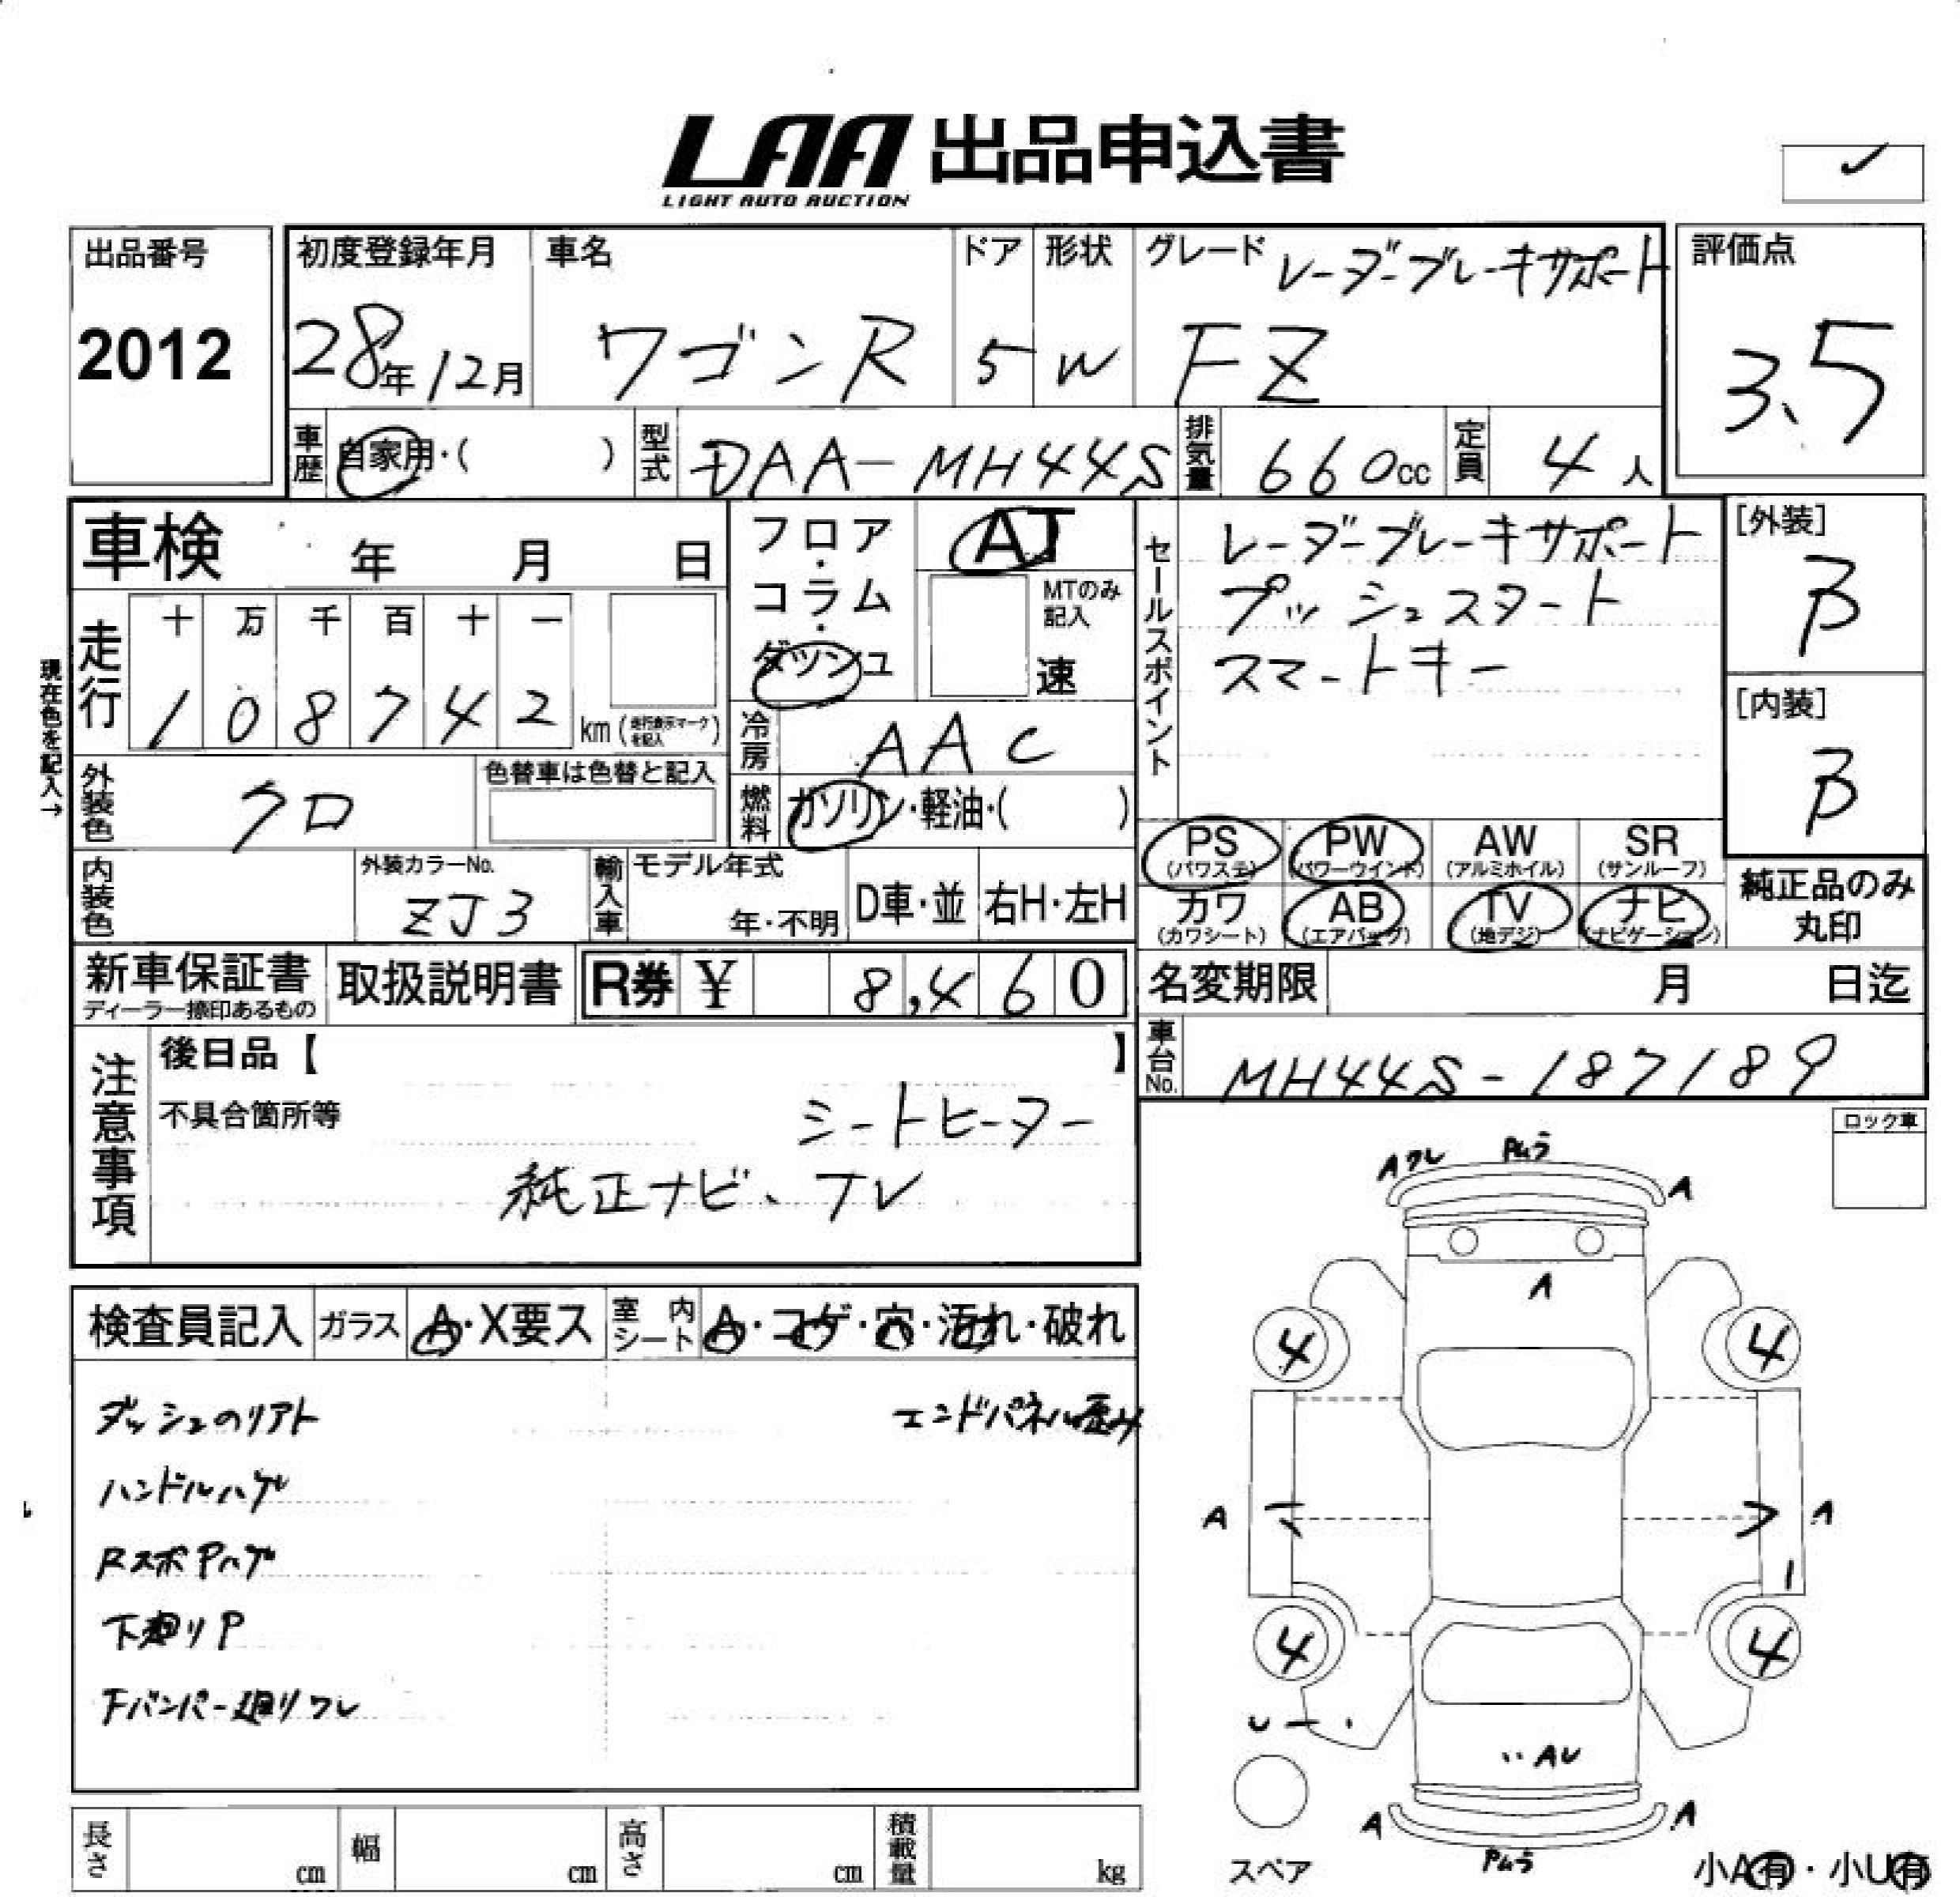 LAA 出品申込書
LIGHT AUTO AUCTION
出品番号
2012
初度登録年月
28年12月
車名
ワゴンR
ドア
5
形状
W
グレード レーダーブレーキサポート
FZ
評価点
3.5
車歴
自家用・( )
型式
DAA-MH44S
排気量
660cc
定員
4人
車検 年 月 日
現在色を記入→
走行
十 万 千 百 十 一
1 0 8 7 4 2 km (走行表示マークを記入)
フロア・コラム・ダッシュ
AT
MTのみ記入
速
冷房
AAC
燃料
ガソリン・軽油・( )
外装色
クロ
色替車は色替と記入
内装色
外装カラーNo.
ZJ3
輸入車
モデル年式
年・不明
D車・並
右H・左H
セールスポイント
レーダーブレーキサポート
プッシュスタート
スマートキー
[外装]
B
[内装]
B
PS (パワステ)
PW (パワーウインド)
AW (アルミホイル)
SR (サンルーフ)
カワ (カワシート)
AB (エアバッグ)
TV (地デジ)
ナビ (ナビゲーション)
純正品のみ
丸印
新車保証書
ディーラー捺印あるもの
取扱説明書
R券 ¥ 8,460
名変期限 月 日迄
車台No.
MH44S-187189
注意事項
後日品【 】
不具合箇所等
シートヒーター
純正ナビ、TV
ロック車
検査員記入
ガラス
A・X要ス
室内シート
A・コゲ・穴・汚れ・破れ
ダッシュのリアト
エンドパネル歪み
ハンドルハゲ
RスポPハゲ
下廻りP
Fバンパー廻りワレ
Aワレ
Pムラ
A
A
4
4
A
A
4
4
AU
A
A
Pムラ
スペア
小A有・小U有
長さ
cm
幅
cm
高さ
cm
積載量
kg